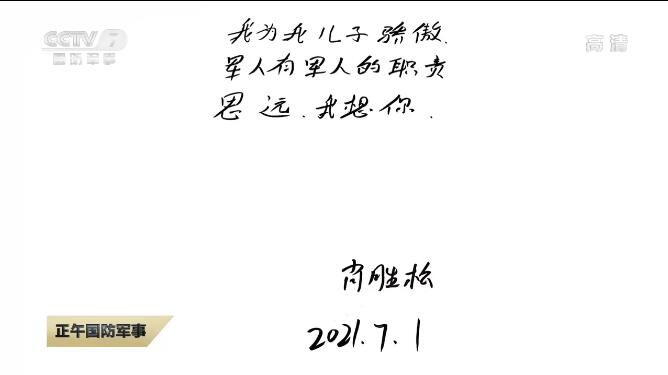 CCTV 7
国防军事
高清
我为我儿子骄傲.
军人有军人的职责
思远.我想你.
肖胜松
2021.7.1
正午国防军事